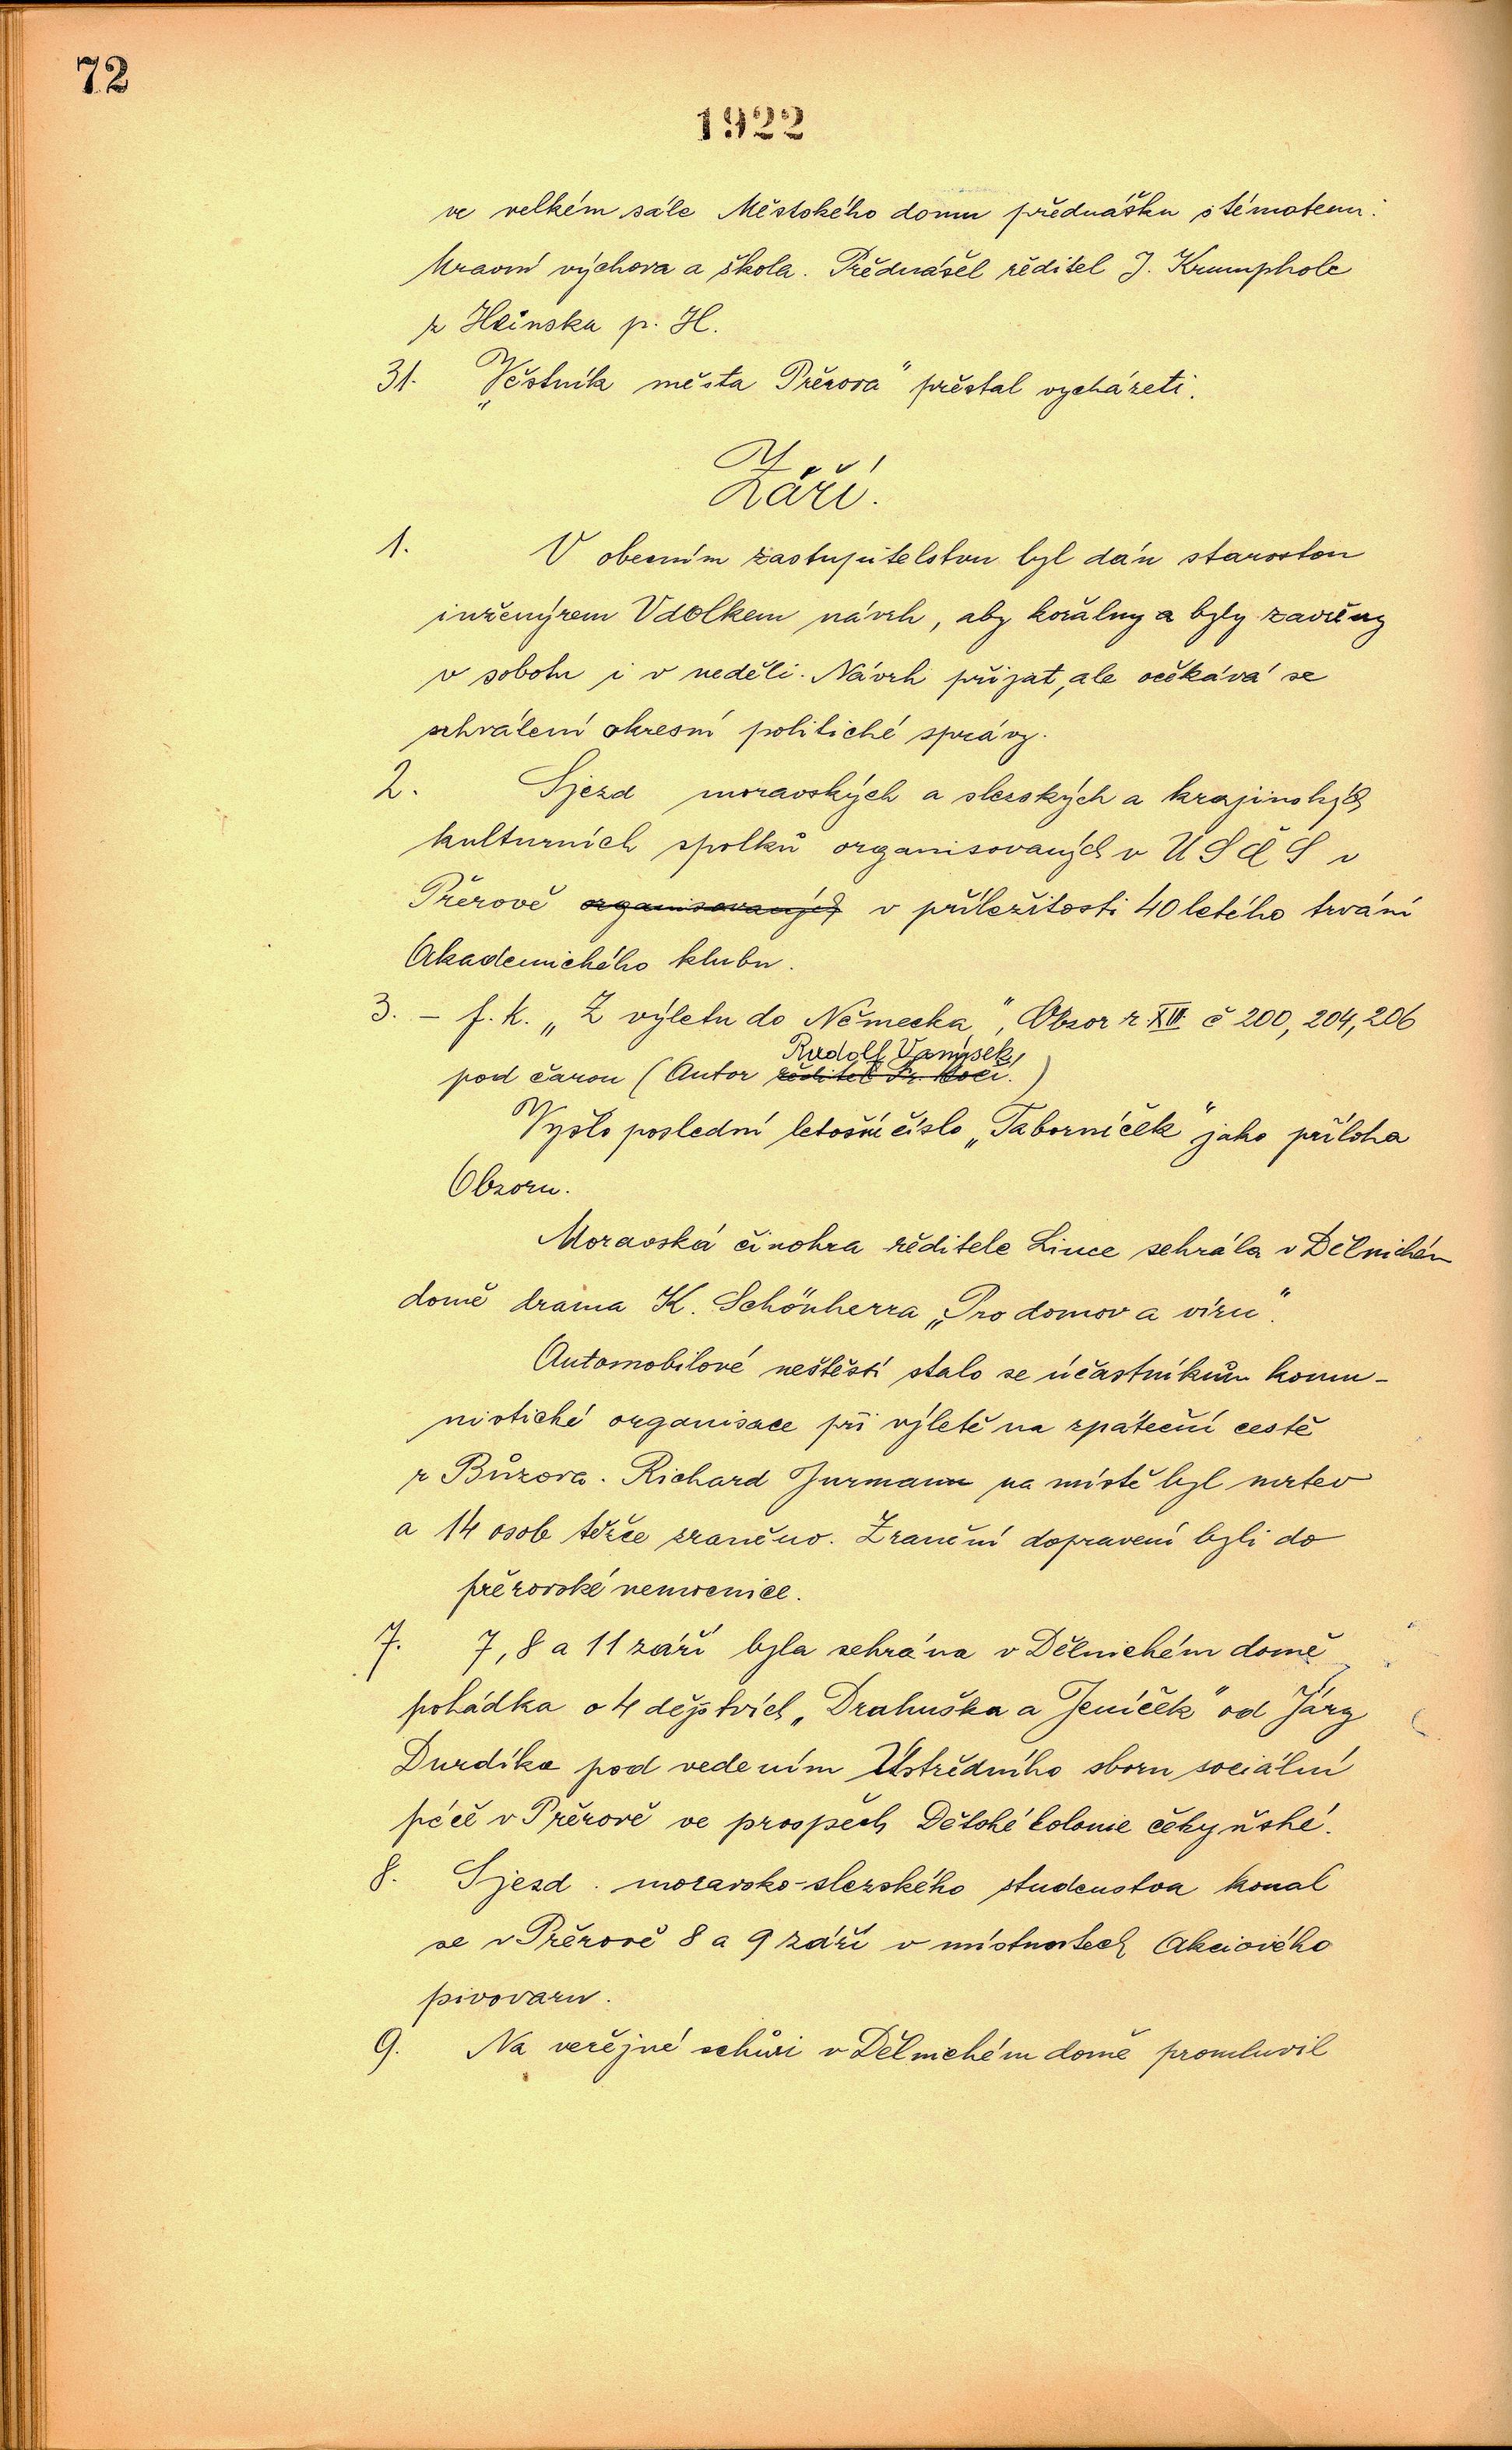 72
1922
ve velkém sále Městského domu přednášku s tématem:
Mravní výchova a škola. Přednášel ředitel J. Krumpholc
z Hlinska p. H.
31. „Věstník města Přerova" přestal vycházeti.
Září.
1. V obecním zastupitelstvu byl dán starostou
inženýrem Vdolkem návrh, aby kořalny a byly zavřeny
v sobotu i v neděli. Návrh přijat, ale očekává se
schválení okresní politické správy.
2. Sjezd moravských a slezských a krajinských
kulturních spolků organisovaných v U S Č S v
Přerově organisovaných v příležitosti 40 letého trvání
Akademického klubu.
3. - f. k. „Z výletu do Německa", Obzor r. XIX č 200, 204, 206
Rudolf Vanýsek,
pod čarou (Autor ředitel Fr. Kočí.)
Vyšlo poslední letošní číslo „Taborníček" jako příloha
Obzoru.
Moravská činohra ředitele Lince sehrála v Dělnickém
domě drama K. Schönherra „Pro domov a víru".
Automobilové neštěstí stalo se účastníkům komu-
nistické organisace při výletě na zpáteční cestě
z Bůzova. Richard Jurmann na místě byl mrtev
a 14 osob těžce zraněno. Zranění dopraveni byli do
přerovské nemocnice.
7. 7, 8 a 11 září byla sehrána v Dělnickém domě
pohádka o 4 dějstvích „Drahuška a Jeníček" od Járy
Durdíka pod vedením Ústředního sboru sociální
péče v Přerově ve prospěch Dětské kolonie čekyňské.
8. Sjezd . moravsko-slezského studenstva konal
se v Přerově 8 a 9 září v místnostech Akciového
pivovaru.
9. Na veřejné schůzi v Dělnickém domě promluvil